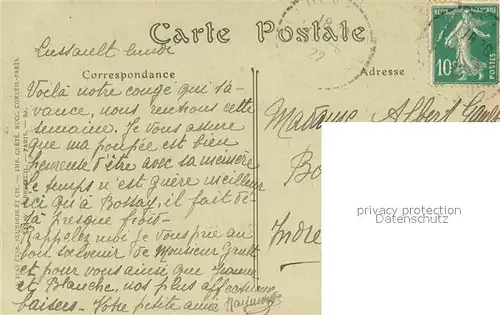 Carte Postale
Lussault lundi
Correspondance
Adresse
RÉPUBLIQUE FRANÇAISE
10c
POSTES
22
Voilà notre congé qui s'a-
vance, nous rentrons cette
semaine. Je vous assure
que ma poupée est bien
heureuse d'être avec sa mémère
Le temps n'est guère meilleur
ici qu'à Bossay, il fait dé-
là presque froid-
Rappelez moi je vous prie au
bon souvenir de Monsieur Gault
et pour vous ainsi que
et Blanche, nos plus affectueux
baisers - Votre petite amie
Madame Albert Gault
Bo
Indre
privacy protection
Datenschutz